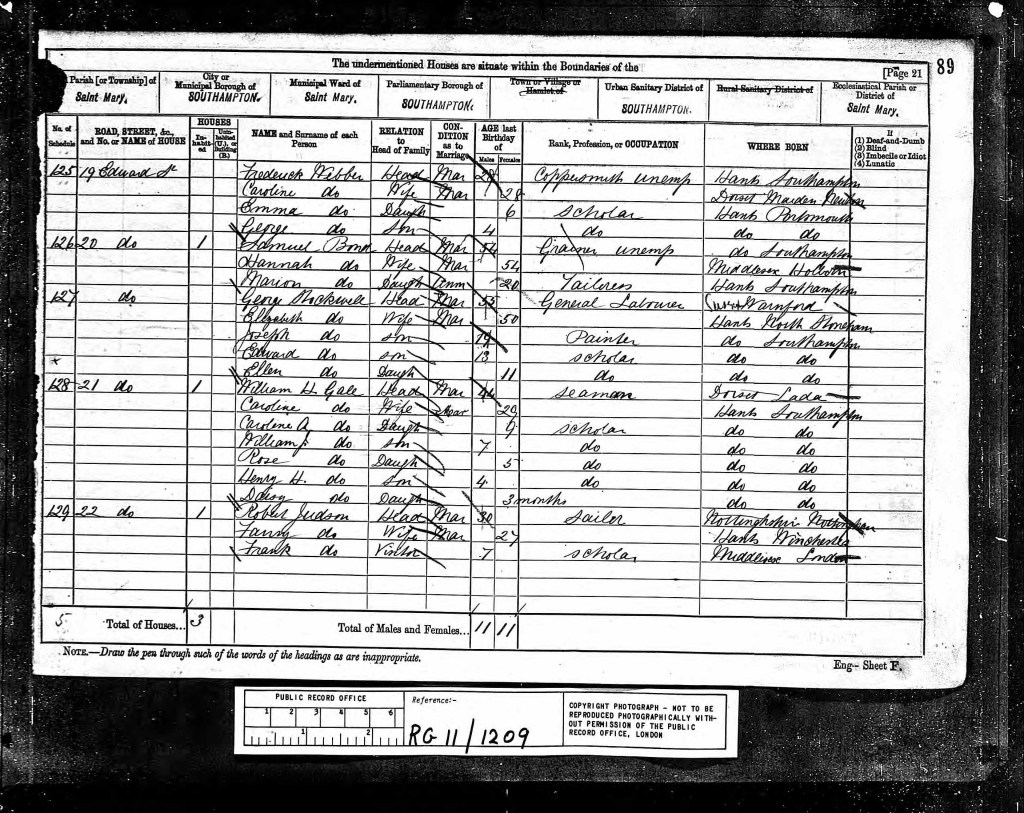 The undermentioned Houses are situate within the Boundaries of the
[Page 21
89
Parish [or Township] of Saint Mary.
City or Municipal Borough of SOUTHAMPTON.
Municipal Ward of Saint Mary.
Parliamentary Borough of SOUTHAMPTON.
Town or Village or Hamlet of
Urban Sanitary District of SOUTHAMPTON.
Rural Sanitary District of
Ecclesiastical Parish or District of Saint Mary.
No. of Schedule
ROAD, STREET, &c., and No. or NAME of HOUSE
HOUSES
Inhabited
Uninhabited (U.), or Building (B.)
NAME and Surname of each Person
RELATION to Head of Family
CONDITION as to Marriage
AGE last Birthday of
Males
Females
Rank, Profession, or OCCUPATION
WHERE BORN
If
(1) Deaf-and-Dumb
(2) Blind
(3) Imbecile or Idiot
(4) Lunatic
125 19 Edward St Frederick Webber Head Mar 28 Coppersmith unemp Hants Southampton
Caroline do Wife Mar 28 Dorset Maiden Newton
Emma do Daugh 6 Scholar Hants Portsmouth
George do Son 4 do do do
126 20 do 1 Samuel Bond Head Mar 54 Grainer unemp do Southampton
Hannah do Wife Mar 54 Middlesex Holborn
Marion do Daugh Unm 20 Tailoress Hants Southampton
127 do George Stockwell Head Mar 55 General Labourer Warnford
Elizabeth do Wife Mar 50 Hants North Stoneham
Joseph do Son 19 Painter do Southampton
Edward do Son 13 Scholar do do
x Ellen do Daugh 11 do do do
128 21 do 1 William H. Gale Head Mar 44 Seaman Dorset
Caroline do Wife Mar 29 Hants Southampton
Caroline A. do Daugh 9 Scholar do do
William J. do Son 7 do do do
Rose do Daugh 5 do do do
Henry H. do Son 4 do do do
Daisy do Daugh 3 months do do
129 22 do 1 Robert Judson Head Mar 30 Nottingham
Fanny do Wife Mar 27 Hants Winchester
Frank do Visitor 7 Scholar Middlesex London
5 Total of Houses... 3
Total of Males and Females... 11 11
NOTE.—Draw the pen through such of the words of the headings as are inappropriate.
Eng—Sheet F.
PUBLIC RECORD OFFICE
1 2 3 4 5 6
1 2
Reference:-
RG 11/1209
COPYRIGHT PHOTOGRAPH - NOT TO BE
REPRODUCED PHOTOGRAPHICALLY WITH-
OUT PERMISSION OF THE PUBLIC
RECORD OFFICE, LONDON